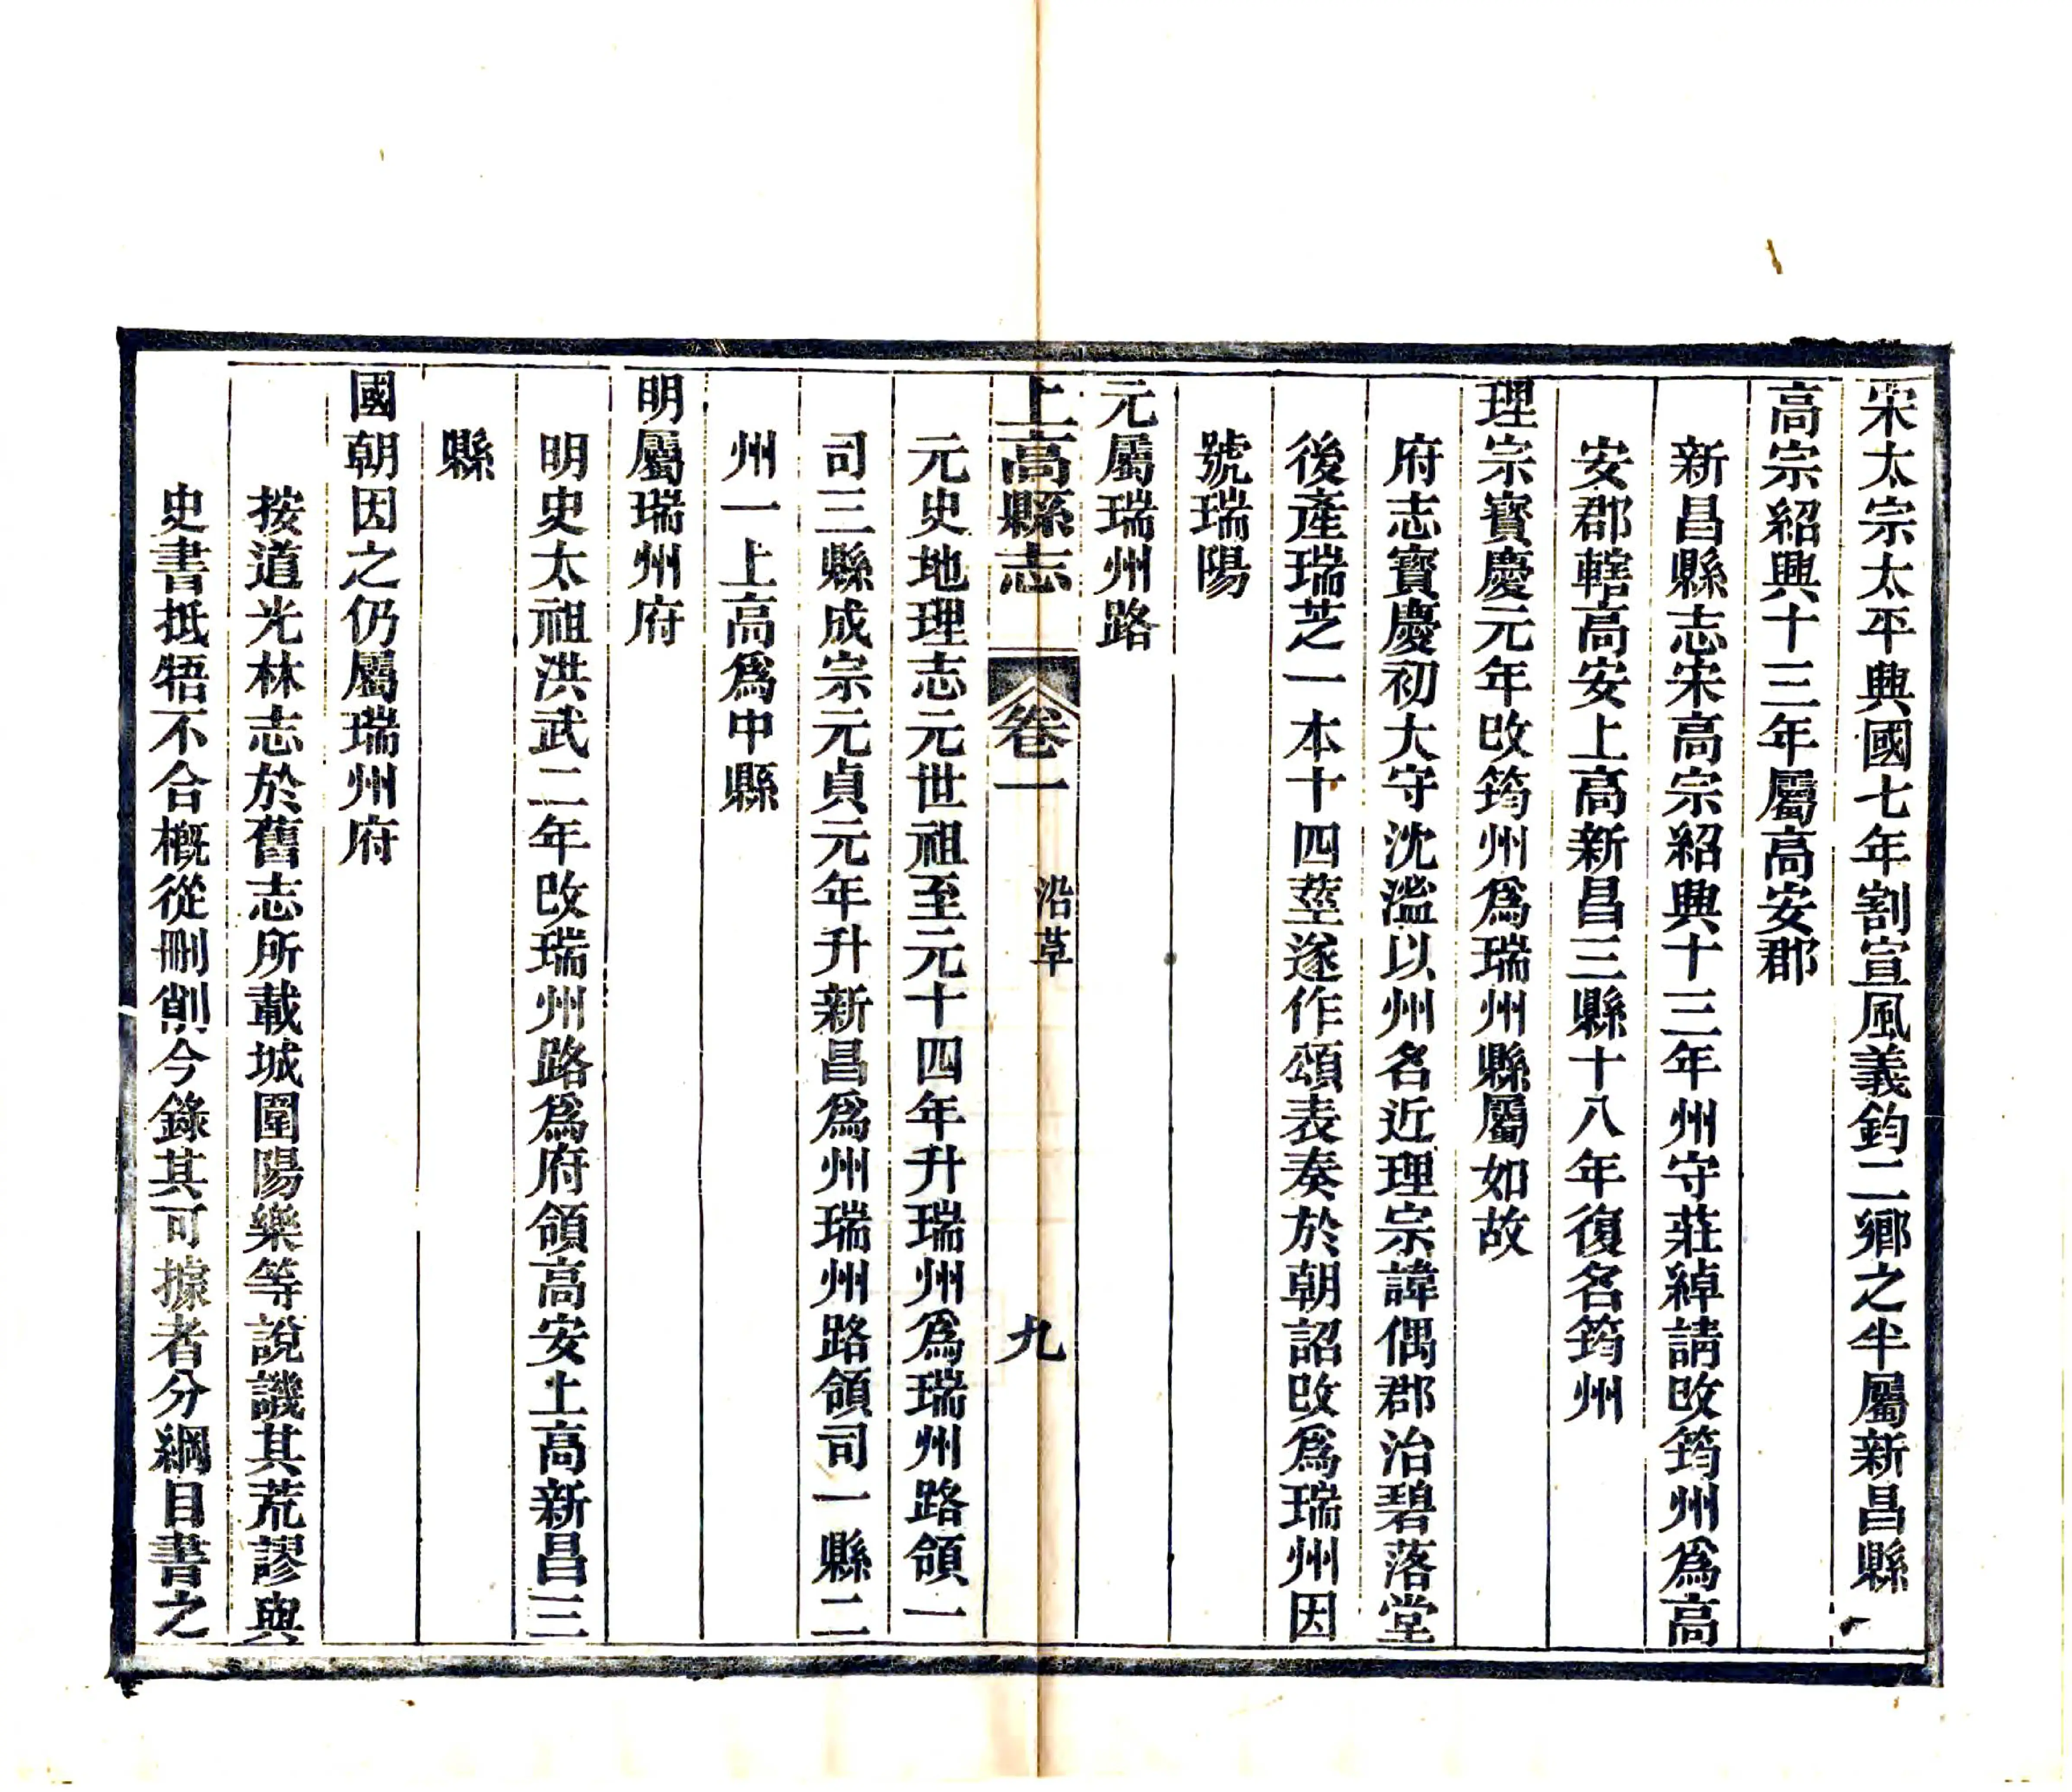 宋太宗太平興國七年割宣風義鈞二鄉之半屬新昌縣
高宗紹興十三年屬高安郡
新昌縣志宋高宗紹興十三年州守莊綽請改筠州爲高
安郡轄高安上高新昌三縣十八年復名筠州
理宗寶慶元年改筠州爲瑞州縣屬如故
府志寶慶初大守沈濫以州名近理宗諱偶郡治碧落堂
後產瑞芝一本十四莖遂作頌表奏於朝詔改爲瑞州因
號瑞陽
元屬瑞州路
上高縣志 卷一 沿革 九
元史地理志元世祖至元十四年升瑞州爲瑞州路領一
司三縣成宗元貞元年升新昌爲州瑞州路領司一縣二
州一上高爲中縣
明屬瑞州府
明史太祖洪武二年改瑞州路爲府領高安上高新昌三
縣
國朝因之仍屬瑞州府
按道光林志於舊志所載城圍陽樂等說譏其荒謬與
史書抵牾不合槪從刪削今錄其可據者分綱目書之